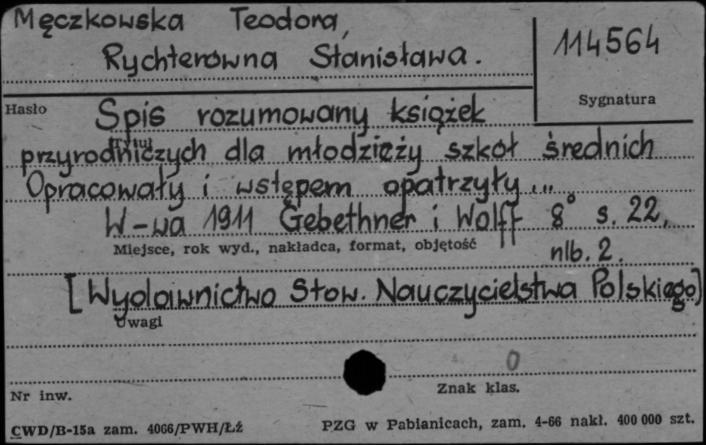 Męczkowska Teodora,
Rychterówna Stanisława.
114564
Hasło
Sygnatura
Spis rozumowany książek
Tytuł
przyrodniczych dla młodzieży szkół średnich
Opracowały i wstępem opatrzyły...
W-wa 1911 Gebethner i Wolff 8° s. 22,
Miejsce, rok wyd., nakładca, format, objętość
nlb. 2.
[Wydawnictwo Stow. Nauczycielstwa Polskiego]
Uwagi
0
Nr inw.
Znak klas.
CWD/B-15a zam. 4066/PWH/Łź
PZG w Pabianicach, zam. 4-66 nakł. 400 000 szt.